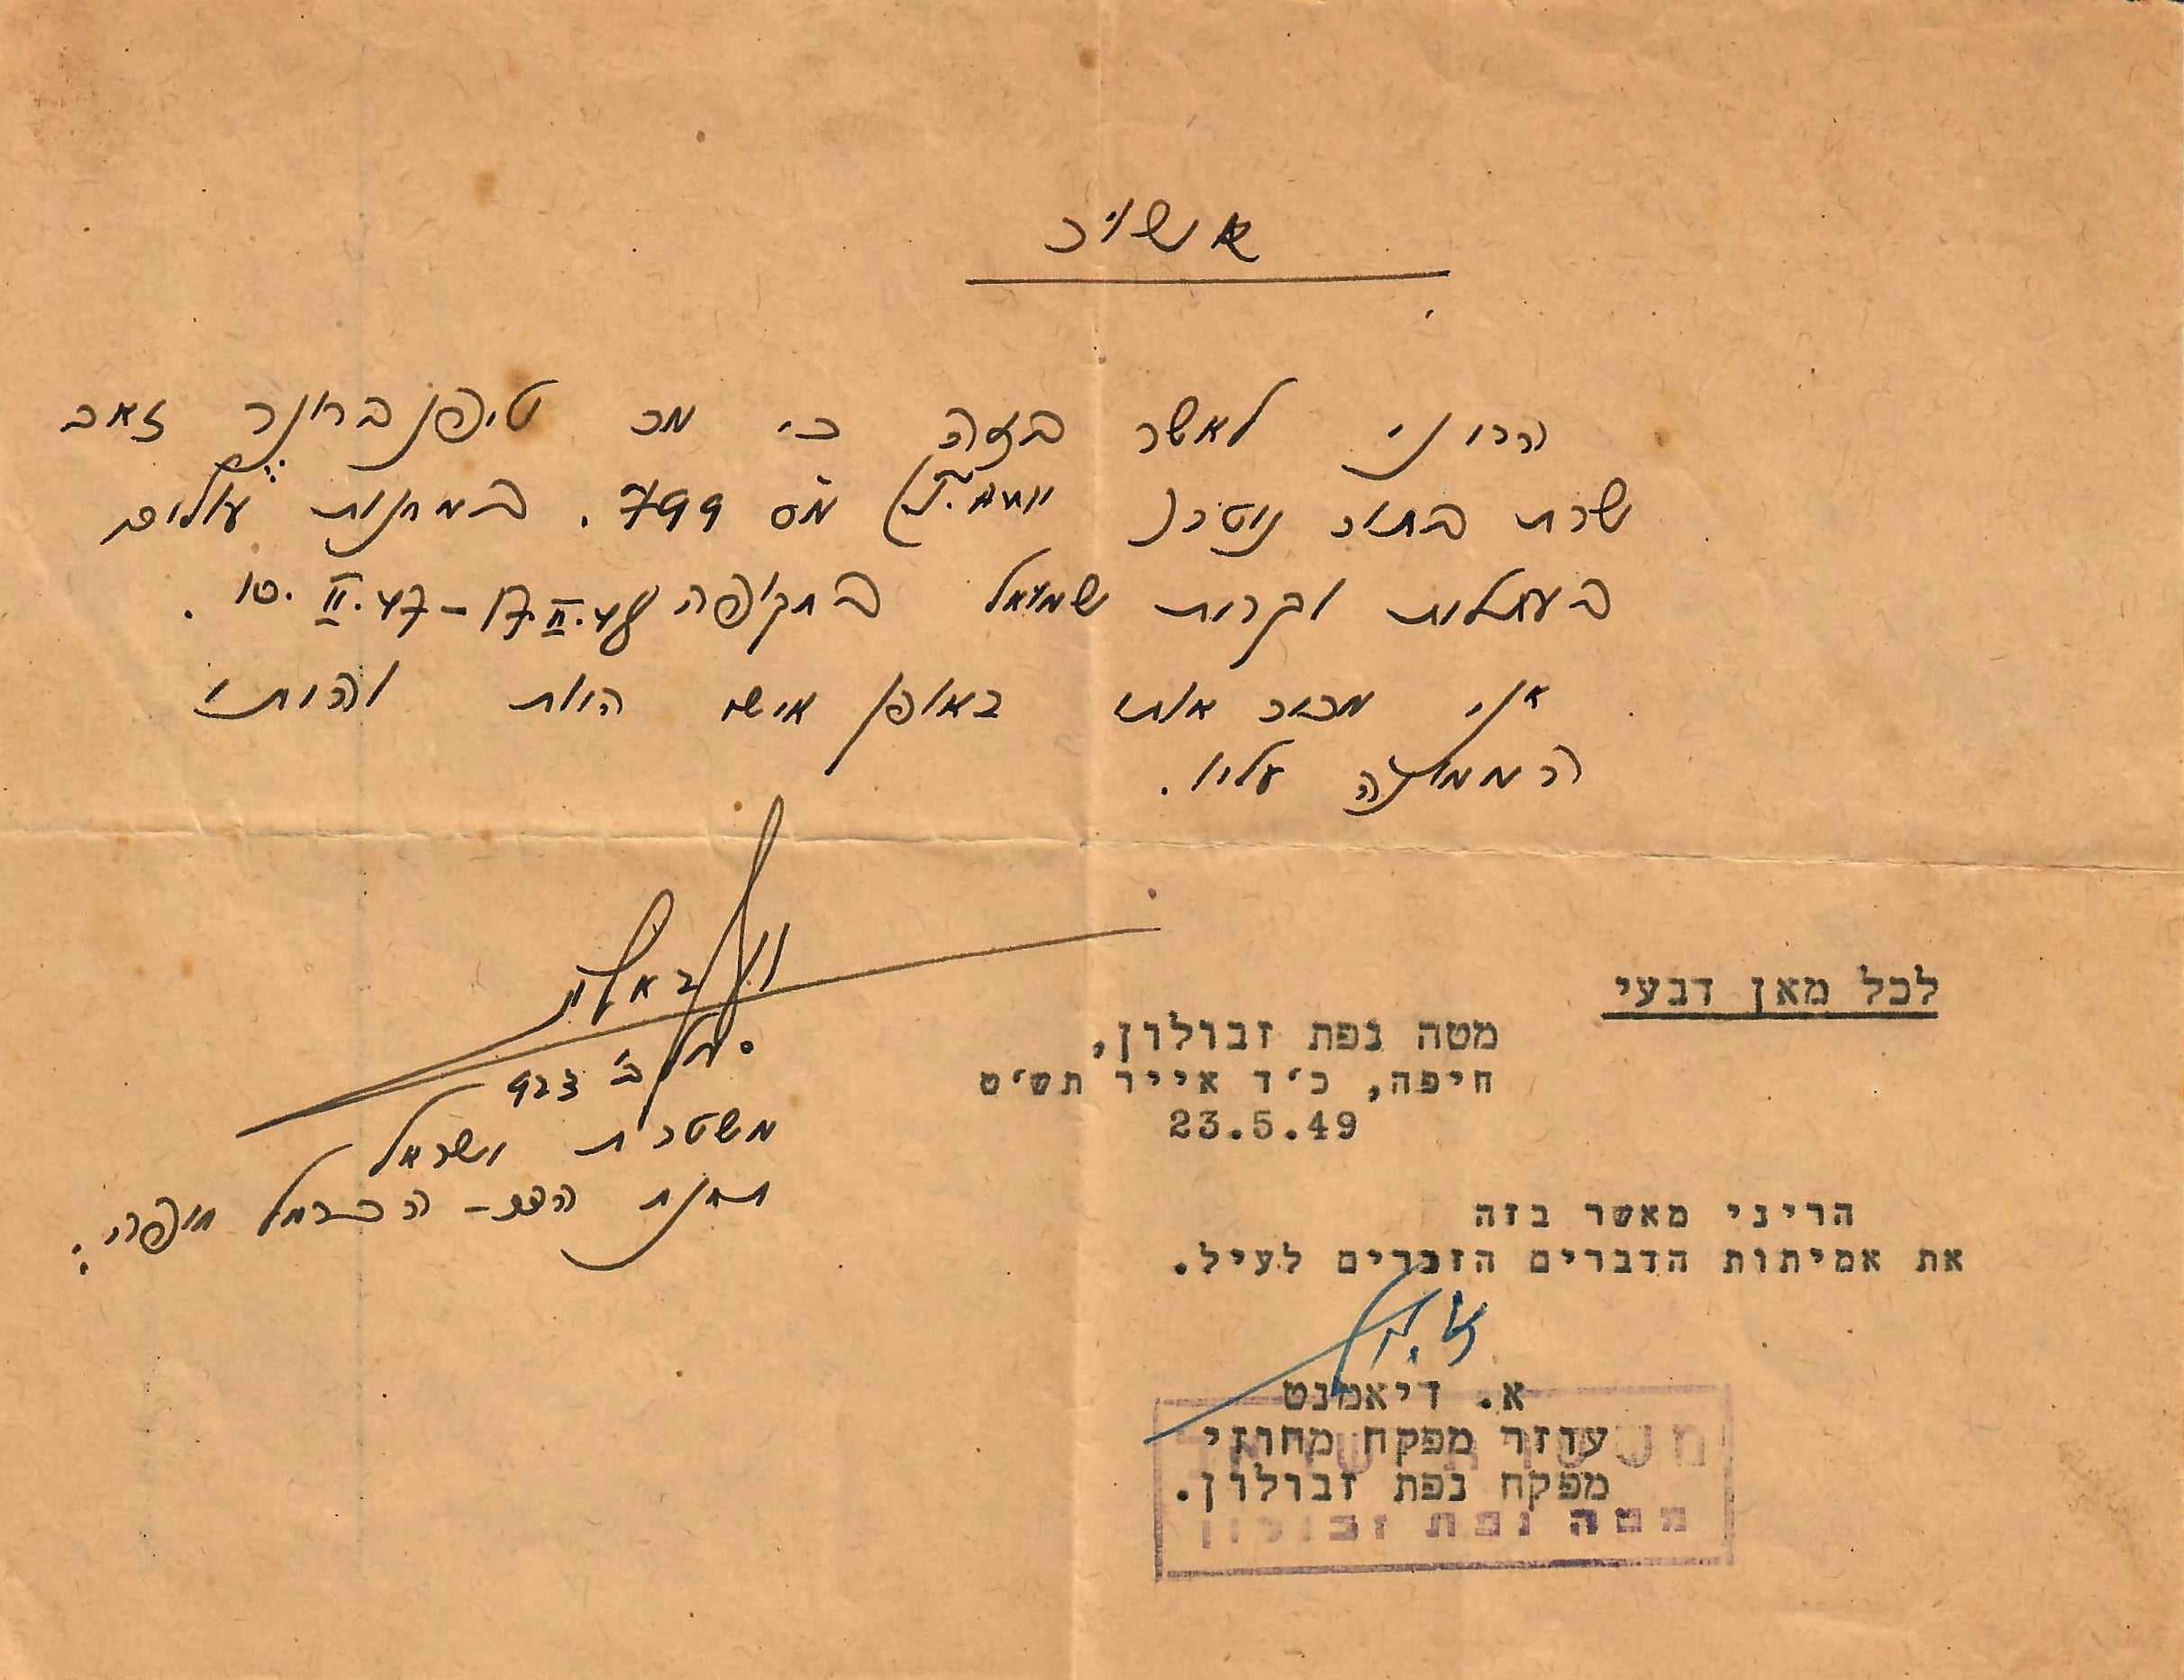 אשור
הריני לאשר בזה כי מר טיפנברונר זאב
שרת בתור נוטר ( ) מס 799. במחנות עולים
בעתלית וקרית שמואל בתקופה 10.II.47-17.II.48.
אני מכיר אותו באופן אישי היות והיתי
הממונה עליו.
923
משטרת ישראל
תחנת הדר- הכרמל חיפה.
לכל מאן דבעי
מטה נפת זבולון,
חיפה, כ'ד אייר תש'ט
23.5.49
הריני מאשר בזה
את אמיתות הדברים הזכרים לעיל.
א. דיאמנט
עוזר מפקח מחוזי
מפקח נפת זבולון.
משטרת ישראל
מטה נפת זבולון